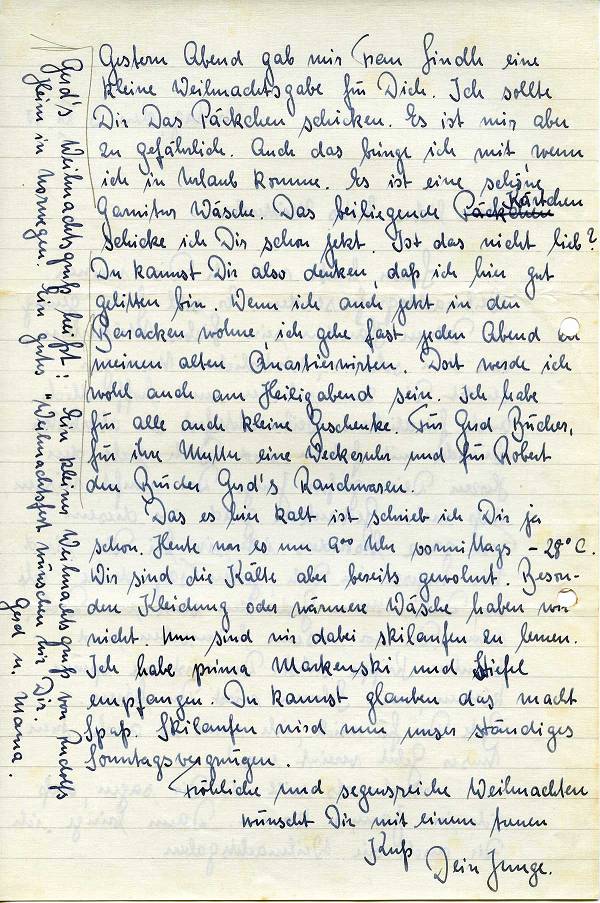 Gestern Abend gab mir Frau Lindh eine
kleine Weihnachtsgabe für Dich. Ich sollte
Dir Das Päckchen schicken. Es ist mir aber
zu gefährlich. Auch das bringe ich mit, wenn
ich in Urlaub komme. Es ist eine schöne
Garnitur Wäsche. Das beiliegende Päckchen Kärtchen
schicke ich Dir schon jetzt. Ist das nicht lieb?
Du kannst Dir also denken, daß ich hier gut
gelitten bin. Wenn ich auch jetzt in den
Baracken wohne, ich gehe fast jeden Abend zu
meinen alten Quartierwirten. Dort werde ich
wohl auch am Heiligabend sein. Ich habe
für alle auch kleine Geschenke. Für Gerd Bücher,
für ihre Mutter eine Weckeruhr und für Robert
den Bruder Gerd's Rauchwaren.
Das es hier kalt ist schrieb ich Dir ja
schon. Heute war es um 9⁰⁰ Uhr vormittags - 28° C.
Wir sind die Kälte aber bereits gewohnt. Beson-
dere Kleidung oder wärmere Wäsche haben wir
nicht. Nun sind wir dabei skilaufen zu lernen.
Ich habe prima Markenski und Stiefel
empfangen. Du kannst glauben das macht
Spaß. Skilaufen wird nun unser ständiges
Sonntagsvergnügen.
Fröhliche und segensreiche Weihnachten
wünscht Dir mit einem treuen
Kuß
Dein Junge.
Gerd's Weihnachtsgruß heißt: Ein kleiner Weihnachtsgruß von Rudolfs
Heim in Norwegen. Ein gutes Weihnachtsfest wünschen wir Dir.
Gerd u. Mama.